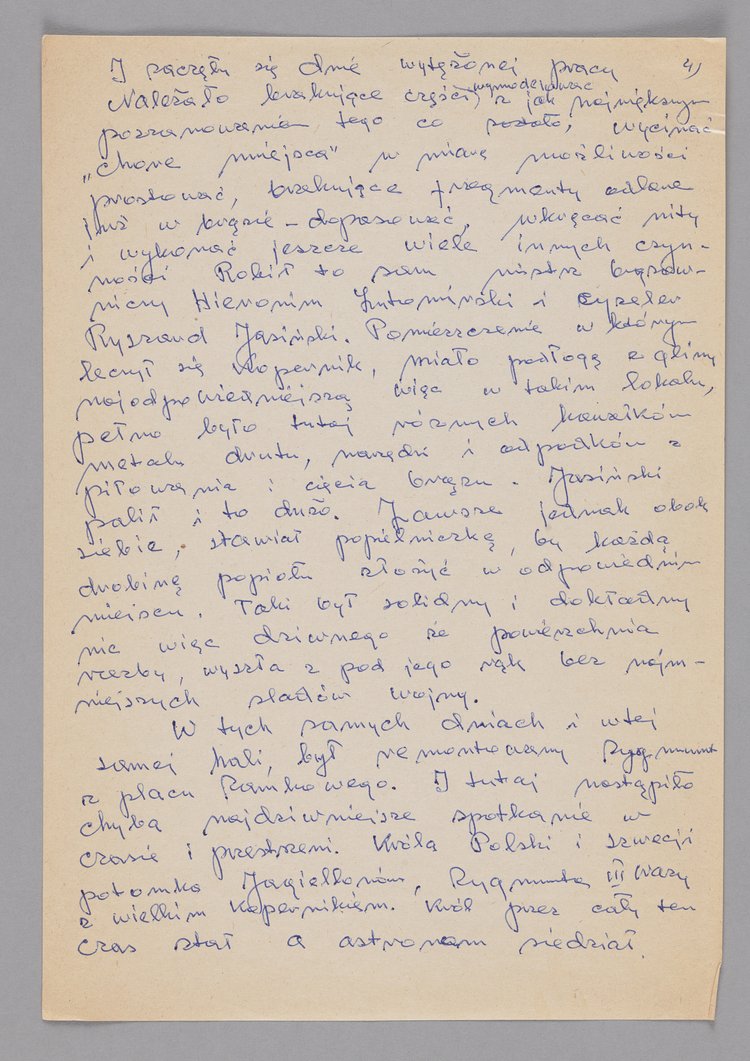 4)
I zaczęły się dnie wytężonej pracy
Należało brakujące części wymodelować z jak największym
poszanowaniem tego co zostało, wycinać
„chore miejsca” w miarę możliwości
prostować, brakujące fragmenty odlane
już w brązie – dopasować, wkręcać nity
i wykonać jeszcze wiele innych czyn-
ności Robił to sam mistrz brązow-
niczy Hieronim i cyzeler
Ryszard Jasiński. Pomieszczenie w którym
leczył się Kopernik, miało podłogę z gliny
najodpowiedniejszą więc w takim lokalu,
pełno było tutaj różnych kawałków
metalu drutu, narzędzi i odpadków z
piłowania i cięcia brązu. Jasiński
palił i to dużo. Zawsze jednak obok
siebie, stawiał popielniczkę, by każdą
drobinę popiołu złożyć w odpowiednim
miejscu. Taki był solidny i dokładny
nic więc dziwnego że powierzchnia
rzeźby, wyszła z pod jego rąk bez najm-
niejszych śladów wojny.
W tych samych dniach i w tej
samej hali, był remontowany Zygmunt
z placu Zamkowego. I tutaj nastąpiło
chyba najdziwniejsze spotkanie w
czasie i przestrzeni. Króla Polski i Szwecji
potomka Jagiellonów, Zygmunta III Wazy
z wielkim Kopernikiem. Król przez cały ten
czas stał a astronom siedział.